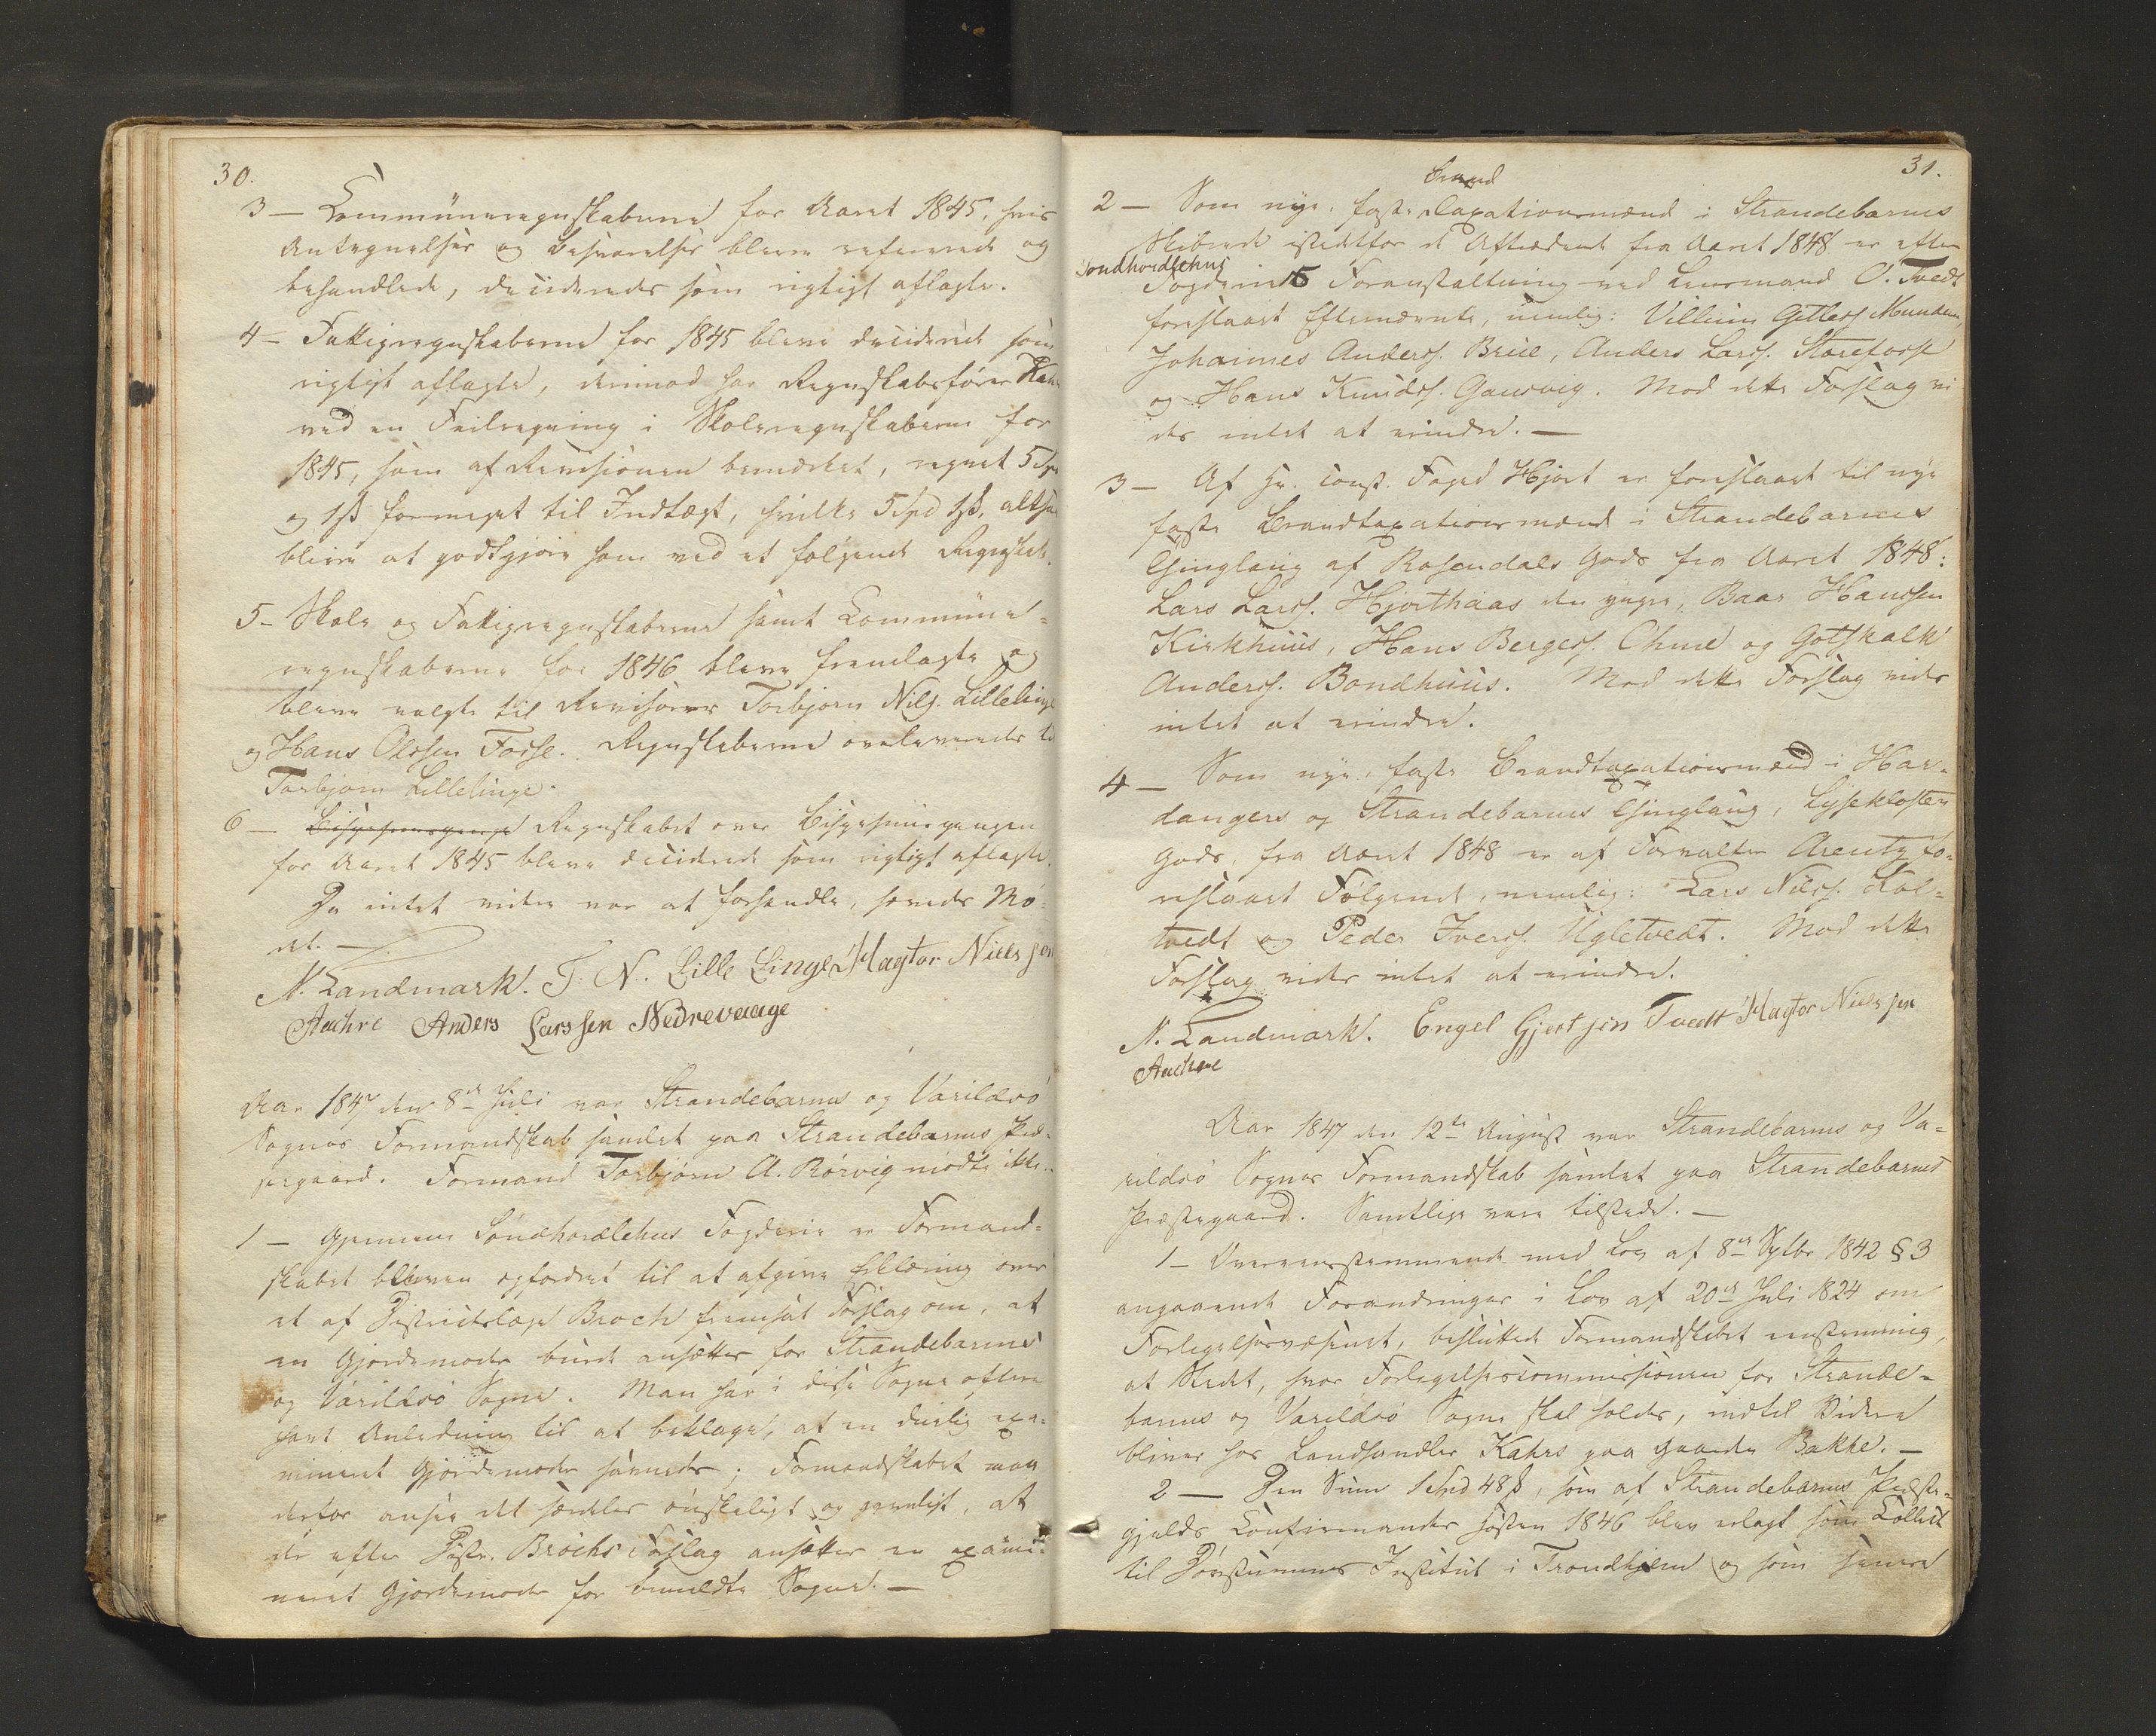 30.
3 – Communeregnskaberne for Aaret 1845, hvis
Antegnelser og Besvarelser bleve refererede og
behandlede, decideredes som rigtigt aflagte.
4 – Fattigregnskaberne for 1845 bleve deciderede som
rigtigt aflagte, derimod har Regnskabsfører
ved en Feilregning i Skoleregnskaberne for
1845, som af Revisionen bemærket, regnet 5 Spd
og 1 ß formeget til Indtægt, hvilke 5 Spd 1 ß, altsaa
bliver at godtgjøre ham ved et følgende Regnskab.
5 – Skole og Fattigregnskaberne samt Commune-
regnskaberne for 1846 bleve fremlagte og
bleve valgte til Revisorer Torbjørn Nils. Lillelinge
og Hans Olssen Fosse. Regnskaberne overleveredes til
Torbjørn Lillelinge.
6 – Regnskabet over Bispehuuspengene
for Aaret 1845 bleve deciderede som rigtigt aflagte.
Da intet videre var at forhandle, hævedes Mø-
det. –
N. Landmark. T. N. Lille Linge Hagtor Nielssen
Aachre Anders Larssen Nedrevaage
Aar 1847 den 8de Juli var Strandebarms og Varildsø
Sognes Formandskab samlet paa Strandebarms Præ-
stegaard. Formand Torbjørn A. Rørvig mødte ikke.
1 – Gjennem Søndhordlehns Fogderie er Formand-
skabet bleven opfordret til at afgive Erklæring over
et af Districtslæge Broch fremsat Forslag om, at
en Gjordemoder burde ansættes for Strandebarms
og Varildsø Sogne. Man har i disse Sogne oftere
havt Anledning til at beklage, at en duelig exa-
mineret Gjordemoder savnedes; Formandskabet maa
derfor ansee det særdeles ønskeligt og gavnligt, at
der efter Distr. Brochs Forslag ansættes en exami-
neret Gjordemoder for bemeldte Sogne. –
31.
Brand
2 – Som nye, faste Taxationsmænd i Strandebarms
Skibrede istedetfor de Aftrædende fra Aaret 1848 er efter
Søndhordlehns
Fogderiets Foranstaltning ved Lensmand O. Tvedt
foreslaaet Efternævnte, nemlig: Villum Gitles. Mundem,
Johannes Anders. Brue, Anders Lars. Storefosse
og Hans Knuds. Gausvig. Mod dette Forslag vi-
des intet at erindre. –
3 – Af Hr. const. Foged Hjort er foreslaaet til nye
faste Brandtaxationsmænd i Strandebarms
Thinglaug af Rosendals Gods fra Aaret 1848:
Lars Lars. Hjorthaas den yngre, Baar Hanssen
Kirkhuus, Hans Berges. Ohme og Gotskalk
Anders. Bondhuus. Mod dette Forslag vides
intet at erindre.
4 – Som nye, faste Brandtaxationsmænd i Har-
dangers og Strandebarms Thinglaug, Lysekloster
Gods, fra Aaret 1848 er af Forvalter Arentz fo-
reslaaet Følgende, nemlig: Lars Nils. Kol-
tvedt og Peder Ivers. Ugletvedt. Mod dette
Forslag vides intet at erindre.
N. Landmark. Engel Gjertsen Tvedt Hagtor Nielssen
Aachre
Aar 1847 den 12te August var Strandebarms og Va-
rildsø Sognes Formandskab samlet paa Strandebarms
Præstegaard. Samtlige vare tilstede. –
1 – Overeensstemmende med Lov af 8de Septbr 1842 § 3
angaaende Forandringer i Lov af 20de Juli 1824 om
Forligelsesvæsenet, besluttede Formandskabet eenstemmig,
at Stedet, hvor Forligelsescommissionen for Strande-
barms og Varildsø Sogne skal holdes, indtil Videre
bliver hos Landhandler Kahrs paa Gaarden Bakke. –
2 – Den Sum 1 Spd 48 ß, som af Strandebarms Præste-
gjelds Confirmander Høsten 1846 blev erlagt som Collect
til Døvstummes Institut i Trondhjem og som senere